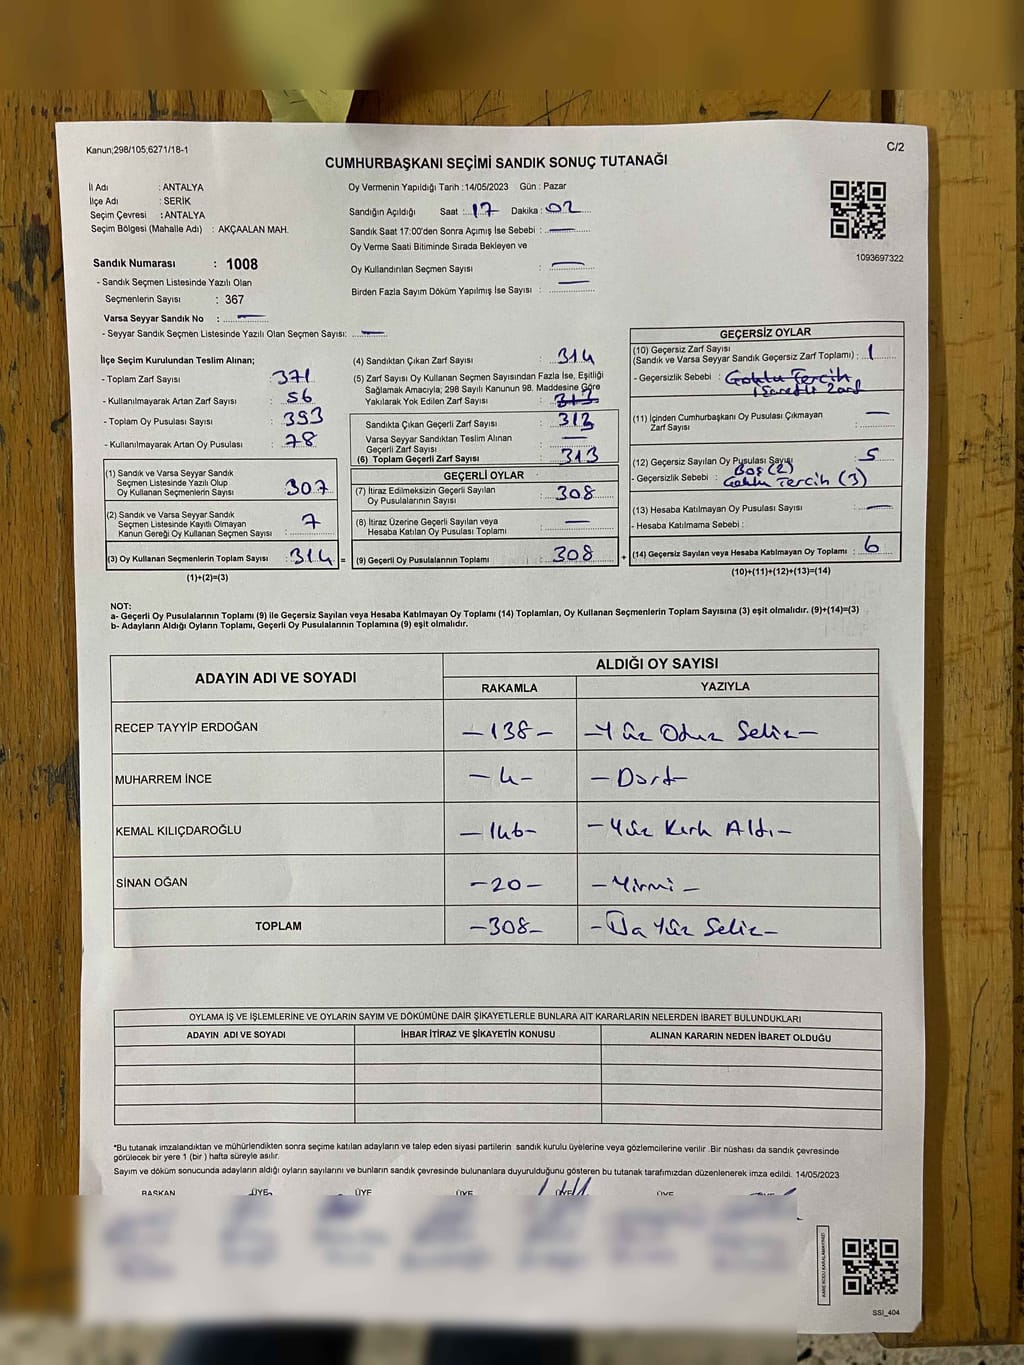 Kanun;298/105;6271/18-1
C/2
CUMHURBAŞKANI SEÇİMİ SANDIK SONUÇ TUTANAĞI
İl Adı : ANTALYA
İlçe Adı : SERİK
Seçim Çevresi : ANTALYA
Seçim Bölgesi (Mahalle Adı) : AKÇAALAN MAH.
Sandık Numarası : 1008
- Sandık Seçmen Listesinde Yazılı Olan
Seçmenlerin Sayısı : 367
Varsa Seyyar Sandık No : —
- Seyyar Sandık Seçmen Listesinde Yazılı Olan Seçmen Sayısı: —
Oy Vermenin Yapıldığı Tarih :14/05/2023 Gün : Pazar
Sandığın Açıldığı Saat : 17 Dakika : 02
Sandık Saat 17:00'den Sonra Açımış İse Sebebi : —
Oy Verme Saati Bitiminde Sırada Bekleyen ve
Oy Kullandırılan Seçmen Sayısı : —
Birden Fazla Sayım Döküm Yapılmış İse Sayısı : —
1093697322
İlçe Seçim Kurulundan Teslim Alınan;
- Toplam Zarf Sayısı : 371
- Kullanılmayarak Artan Zarf Sayısı : 56
- Toplam Oy Pusulası Sayısı : 393
- Kullanılmayarak Artan Oy Pusulası : 78
(1) Sandık ve Varsa Seyyar Sandık
Seçmen Listesinde Yazılı Olup
Oy Kullanan Seçmenlerin Sayısı : 307
(2) Sandık ve Varsa Seyyar Sandık
Seçmen Listesinde Kayıtlı Olmayan
Kanun Gereği Oy Kullanan Seçmen Sayısı : 7
(3) Oy Kullanan Seçmenlerin Toplam Sayısı : 314 =
(1)+(2)=(3)
(4) Sandıktan Çıkan Zarf Sayısı : 314
(5) Zarf Sayısı Oy Kullanan Seçmen Sayısından Fazla İse, Eşitliği
Sağlamak Amacıyla; 298 Sayılı Kanunun 98. Maddesine Göre
Yakılarak Yok Edilen Zarf Sayısı : 313
Sandıkta Çıkan Geçerli Zarf Sayısı : 313
Varsa Seyyar Sandıktan Teslim Alınan
Geçerli Zarf Sayısı : —
(6) Toplam Geçerli Zarf Sayısı : 313
GEÇERLİ OYLAR
(7) İtiraz Edilmeksizin Geçerli Sayılan
Oy Pusulalarının Sayısı : 308
(8) İtiraz Üzerine Geçerli Sayılan veya
Hesaba Katılan Oy Pusulası Toplamı : —
(9) Geçerli Oy Pusulalarının Toplamı : 308 +
GEÇERSİZ OYLAR
(10) Geçersiz Zarf Sayısı
(Sandık ve Varsa Seyyar Sandık Geçersiz Zarf Toplamı) : 1
- Geçersizlik Sebebi : Çoklu Tercih
İşaretli Zarf
(11) İçinden Cumhurbaşkanı Oy Pusulası Çıkmayan
Zarf Sayısı : —
(12) Geçersiz Sayılan Oy Pusulası Sayısı : 5
- Geçersizlik Sebebi : Boş (2)
Çoklu Tercih (3)
(13) Hesaba Katılmayan Oy Pusulası Sayısı : —
- Hesaba Katılmama Sebebi :
(14) Geçersiz Sayılan veya Hesaba Katılmayan Oy Toplamı : 6
(10)+(11)+(12)+(13)=(14)
NOT:
a- Geçerli Oy Pusulalarının Toplamı (9) ile Geçersiz Sayılan veya Hesaba Katılmayan Oy Toplamı (14) Toplamları, Oy Kullanan Seçmenlerin Toplam Sayısına (3) eşit olmalıdır. (9)+(14)=(3)
b- Adayların Aldığı Oyların Toplamı, Geçerli Oy Pusulalarının Toplamına (9) eşit olmalıdır.
ADAYIN ADI VE SOYADI ALDIĞI OY SAYISI
RAKAMLA YAZIYLA
RECEP TAYYİP ERDOĞAN —138— —Yüz Otuz Sekiz—
MUHARREM İNCE —4— —Dört—
KEMAL KILIÇDAROĞLU —146— —Yüz Kırk Altı—
SİNAN OĞAN —20— —Yirmi—
TOPLAM —308— —Üç Yüz Sekiz—
OYLAMA İŞ VE İŞLEMLERİNE VE OYLARIN SAYIM VE DÖKÜMÜNE DAİR ŞİKAYETLERLE BUNLARA AİT KARARLARIN NELERDEN İBARET BULUNDUKLARI
ADAYIN ADI VE SOYADI İHBAR İTİRAZ VE ŞİKAYETİN KONUSU ALINAN KARARIN NEDEN İBARET OLDUĞU
*Bu tutanak imzalandıktan ve mühürlendikten sonra seçime katılan adayların ve talep eden siyasi partilerin sandık kurulu üyelerine veya gözlemcilerine verilir .Bir nüshası da sandık çevresinde
görülecek bir yere 1 (bir ) hafta süreyle asılır.
Sayım ve döküm sonucunda adayların aldığı oyların sayılarını ve bunların sandık çevresinde bulunanlara duyurulduğunu gösteren bu tutanak tarafımızdan düzenlenerek imza edildi. 14/05/2023
BAŞKAN ÜYE ÜYE ÜYE ÜYE ÜYE
SSI_404